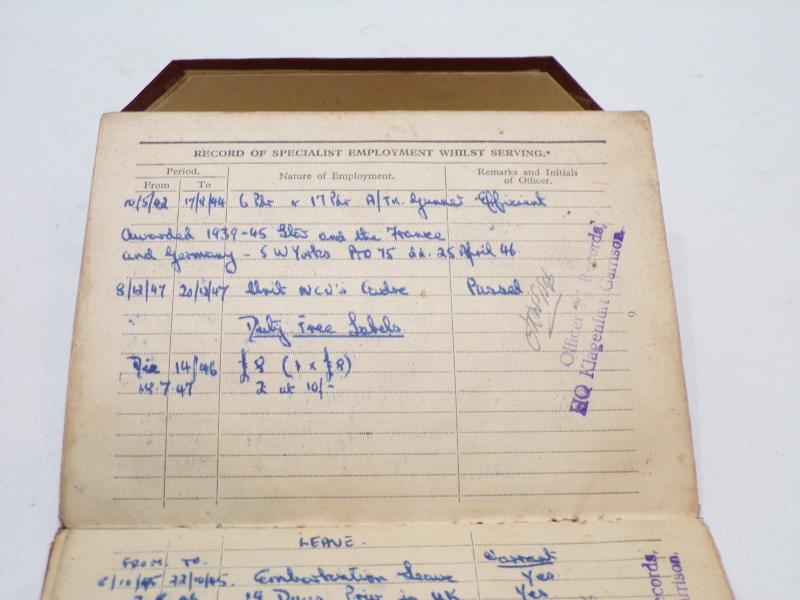 RECORD OF SPECIALIST EMPLOYMENT WHILST SERVING.*
Period.
From To
Nature of Employment.
Remarks and Initials of Officer.
10/5/42 17/8/44 6 Pdr & 17 Pdr A/Tk. Gunner Efficient
Awarded 1939-45 Star and the France
and Germany - S W Yorks PTO 75 dd. 25 April 46
8/12/47 20/12/47 Unit NCO's Cadre Passed
Duty Free Labels
14/46 £8 (1 x £8)
18.7.47 2 at 10/-
Officer i/c Records,
HQ Klagenfurt Garrison.
9
LEAVE.
FROM. TO.
8/10/45 22/10/45. Embarkation Leave Yes
19 Days Priv in UK Yes
Records,
Garrison.